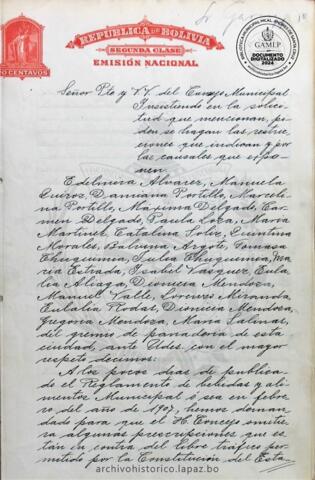 REPÚBLICA DE BOLIVIA
SEGUNDA CLASE
EMISIÓN NACIONAL
CENTAVOS
GAMLP
DOCUMENTO
DIGITALIZADO
2024
Señor Pte y VV. del Concejo Municipal
Insistendo en la solici-
tud que mencionan, pi-
den se hagan las restric-
ciones que indican y por
las causales que expo-
nen.
Edelmira Alvarez, Manuela
Quiroz, Damiana Portillo, Marceli-
na Portillo, Maxima Delgado, Car-
men Delgado, Paula Loza, Maria
Martinez, Catalina Soliz, Quintina
Morales, Balvina Argote, Tomasa
Chuquimia, Julia Chuquimia, Ma-
ria Estrada, Isabel Vasquez, Eula-
lia Aliaga, Dionicia Mendoza,
Manuel Valle, Lorenzo Miranda,
Eulalia Rodas, Dionicia Mendoza,
Gregoria Mendoza, Maria Salinas,
del gremio de panaderia de esta
ciudad, ante Udes. con el mayor
respeto decimos:
A los pocos dias de publica-
do el Reglamento de bebidas y ali-
mentos Municipal ó sea en febre-
ro del año de 1907, hemos deman-
dado para que el H. Concejo omitiera
algunas prescripciones que es-
tán en contra del libre tráfico per-
mitido por la Constitución del Esta-
archivohistorico.lapaz.bo